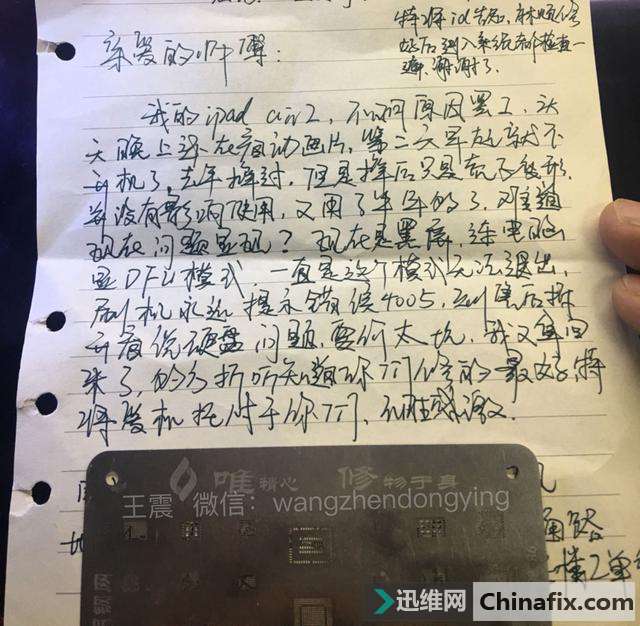 特将id告知,麻烦修
好后进入系统都检查一
遍,谢谢了.
亲爱的师傅:
我的ipad air2,不知何原因罢工,头
天晚上还在看动画片,第二天早起就不
开机了,去年摔过,但是摔后只是壳子变形,
并没有影响使用,又用了半年多了,难道
现在问题显现?现在是黑屏,连电脑
显DFU模式,一直是这个模式无法退出,
刷机永远提示错误4005,到店后拆
开看说硬盘问题,要价太坑,我又拿回
来了,多方打听知道你们修的最好,特
将爱机托付于你们,不胜感激.
唯精心 修物于真
王震 微信:wangzhendongying
迅维网 Chinafix.com